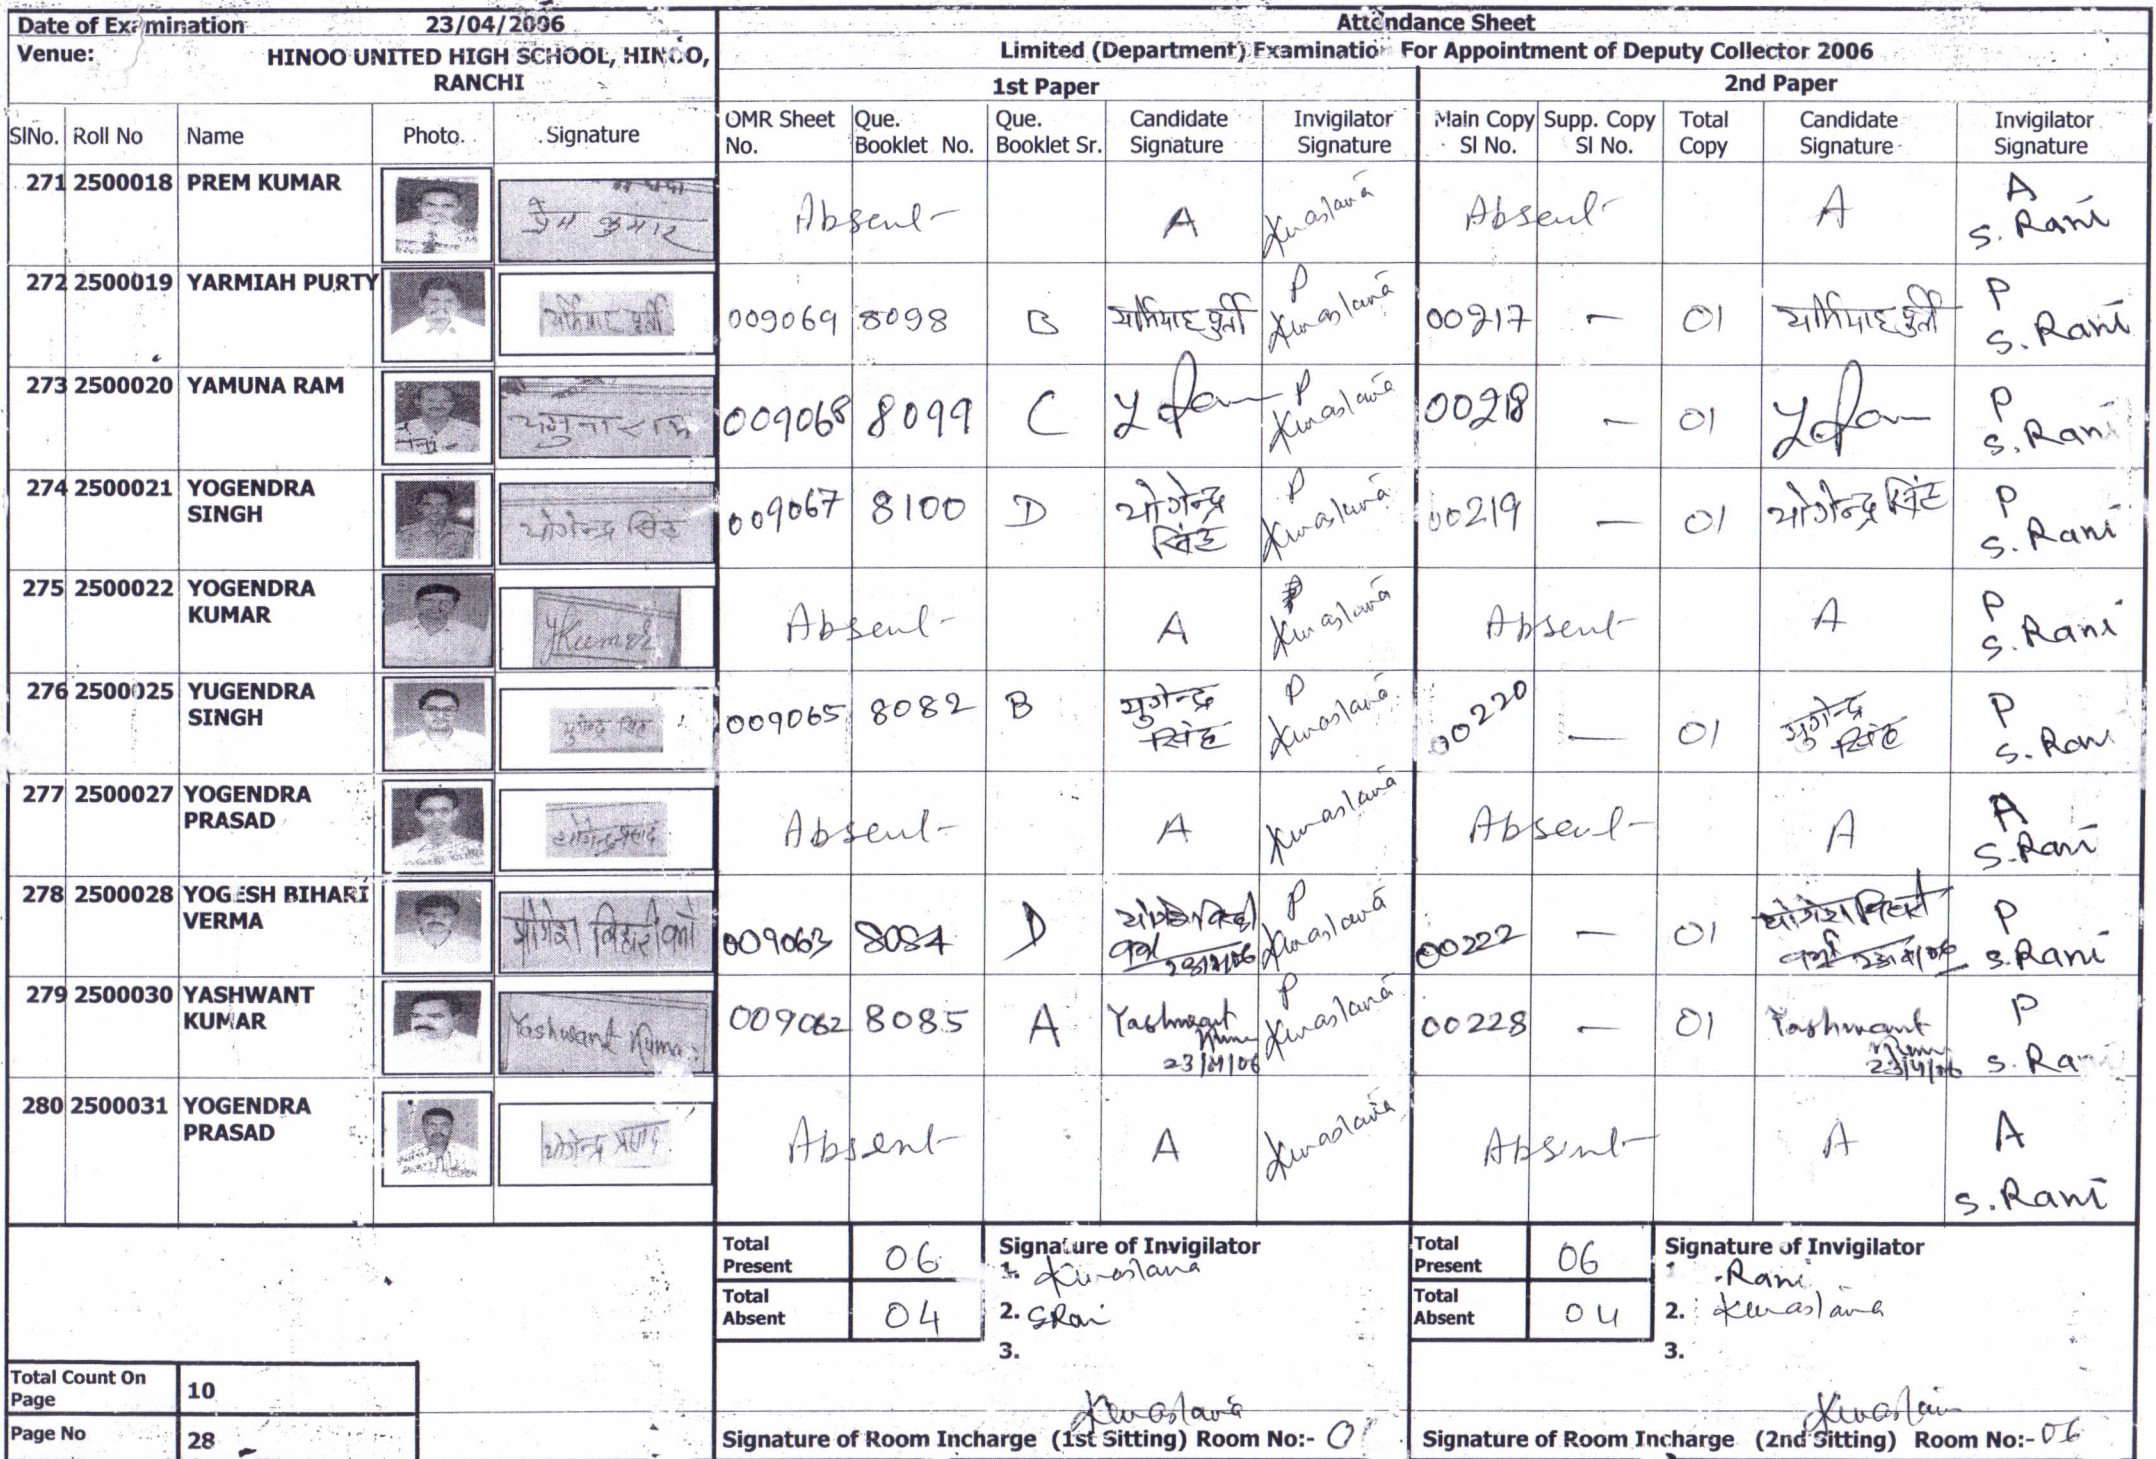 Date of Examination 23/04/2006
Venue: HINOO UNITED HIGH SCHOOL, HINOO, RANCHI
Attendance Sheet
Limited (Department) Examination For Appointment of Deputy Collector 2006
1st Paper 2nd Paper
SlNo. Roll No Name Photo. Signature OMR Sheet No. Que. Booklet No. Que. Booklet Sr. Candidate Signature Invigilator Signature Main Copy Sl No. Supp. Copy Sl No. Total Copy Candidate Signature Invigilator Signature
271 2500018 PREM KUMAR प्रेम कुमार Absent A Absent A A S. Rani
272 2500019 YARMIAH PURTY 009069 8098 B P 00217 — 01 P S. Rani
273 2500020 YAMUNA RAM यमुना राम 009068 8099 C P 00218 — 01 P S. Rani
274 2500021 YOGENDRA SINGH योगेन्द्र सिंह 009067 8100 D योगेन्द्र सिंह P 00219 — 01 योगेन्द्र सिंह P S. Rani
275 2500022 YOGENDRA KUMAR YKumar Absent A Absent A P S. Rani
276 2500025 YUGENDRA SINGH युगेन्द्र सिंह 009065 8082 B युगेन्द्र सिंह P 00220 — 01 युगेन्द्र सिंह P S. Rani
277 2500027 YOGENDRA PRASAD योगेन्द्र प्रसाद Absent A Absent A A S. Rani
278 2500028 YOGESH BIHARI VERMA योगेश बिहारी वर्मा 009063 8084 D योगेश बिहारी वर्मा 23/4/06 P 00222 — 01 योगेश बिहारी वर्मा 23/4/06 P S. Rani
279 2500030 YASHWANT KUMAR Yashwant Kumar 009062 8085 A Yashwant Kumar 23/4/06 P 00228 — 01 Yashwant Kumar 23/4/06 P S. Ra
280 2500031 YOGENDRA PRASAD योगेन्द्र प्रसाद Absent A Absent A A S. Rani
Total Present 06 Signature of Invigilator Total Present 06 Signature of Invigilator
1. 1 Rani
Total Absent 04 2. SRani Total Absent 04 2.
3. 3.
Total Count On Page 10
Page No 28
Signature of Room Incharge (1st Sitting) Room No:- Signature of Room Incharge (2nd Sitting) Room No:- 06